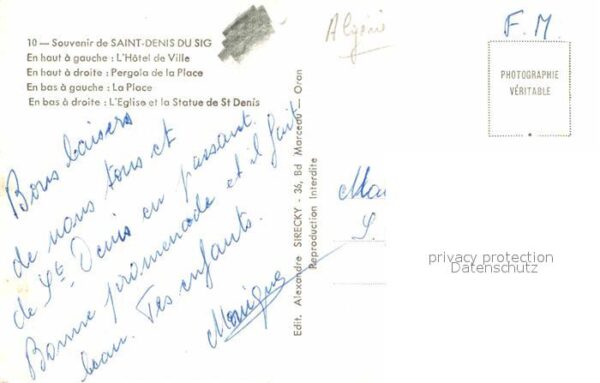 10 — Souvenir de SAINT-DENIS DU SIG
En haut à gauche : L'Hôtel de Ville
En haut à droite : Pergola de la Place
En bas à gauche : La Place
En bas à droite : L'Eglise et la Statue de St Denis
Bons baisers
de nous tous et
de St Denis en passant.
Bonne promenade et il fait
beau. Tes enfants.
Monique
Edit. Alexandre SIRECKY - 36, Bd Marceau - Oran
Reproduction Interdite
Algérie
F. M.
PHOTOGRAPHIE
VÉRITABLE
S.
privacy protection
Datenschutz